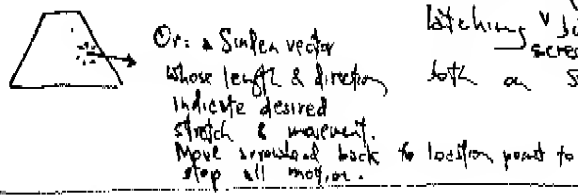 Or: a Screen vector
whose length & direction
indicate desired
stretch & movement.
Move arrowhead back to location point to
stop all motion.
latching
both on